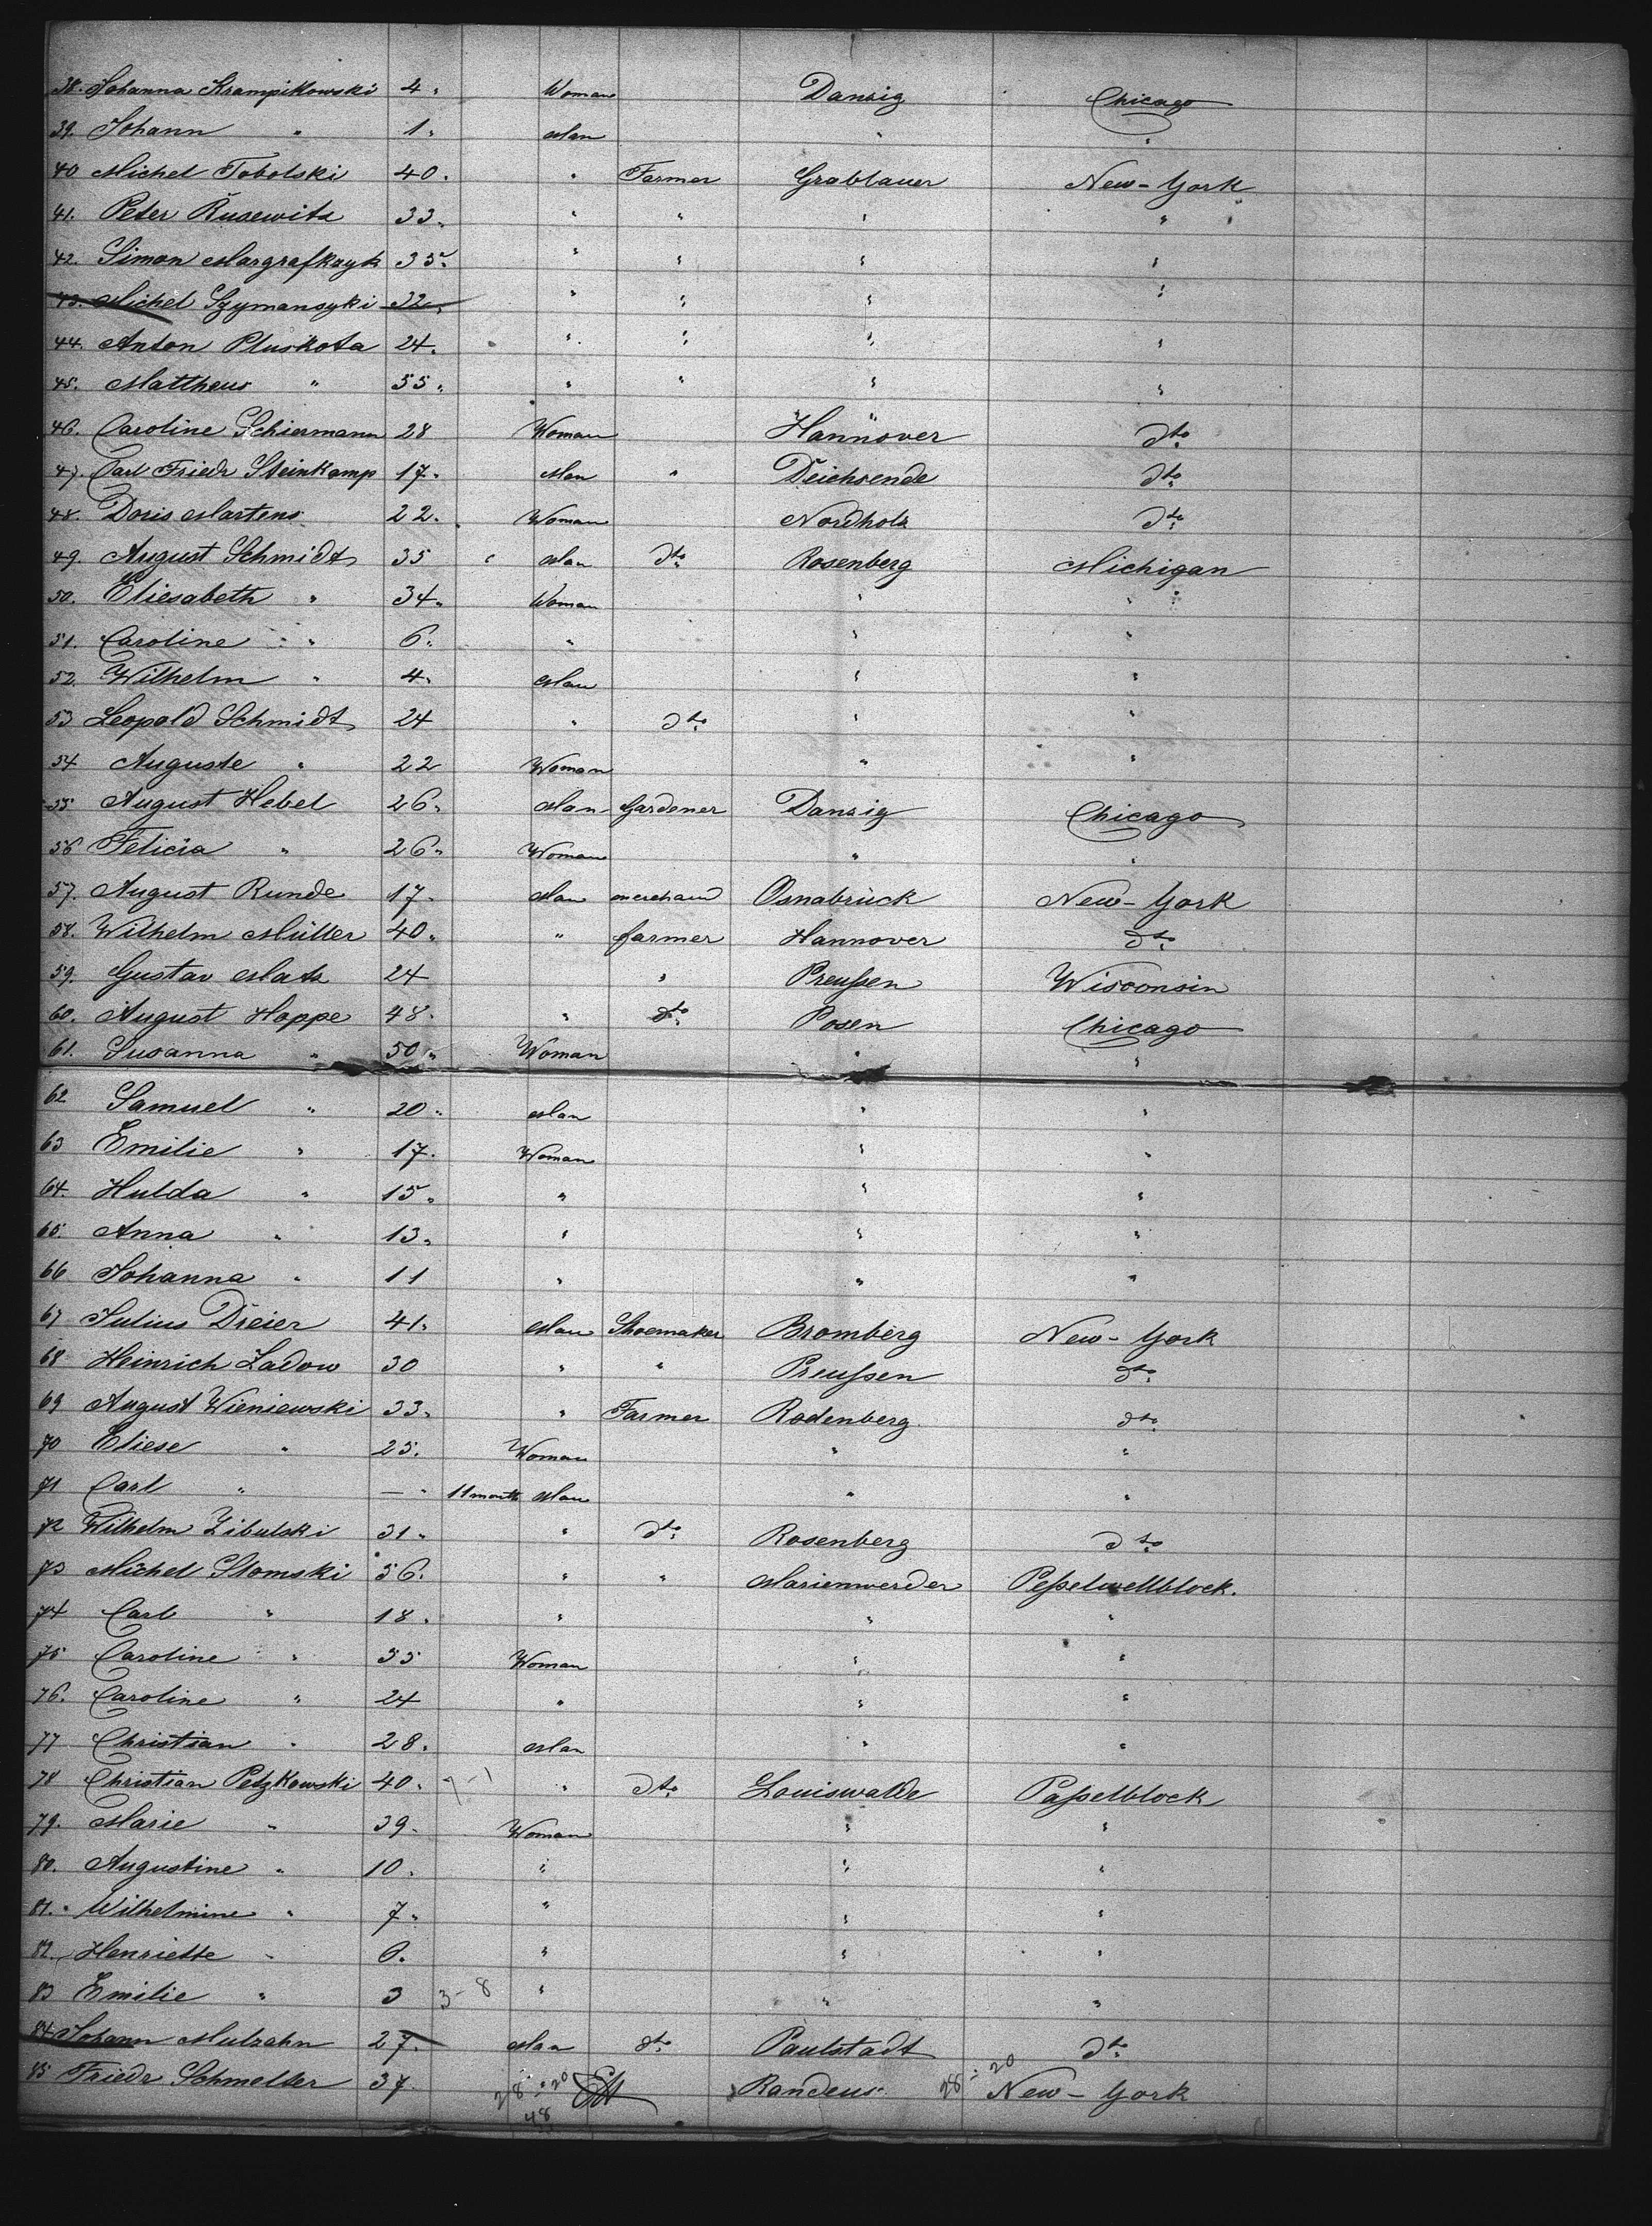 38. Johanna Krampikowski 4 " Woman Danzig Chicago
39. Johann " 1 " Man " "
40 Michel Tobolski 40 " " Farmer Grablauer New-York
41. Peter Rusewitz 33 " " " " "
42. Simon Margrafkayk 35 " " " " "
43. Michel Szymansyki 32 " " " " "
44. Anton Pluskota 24 " " " " "
45. Mattheus " 55 " " " " "
46. Caroline Schiermann 28 Woman Hannover dto
47. Carl Friedr Steinkamp 17 " Man " Deichsende dto
48. Doris Martens 22 " Woman Nordholz dto
49. August Schmidt 35 " Man dto Rosenberg Michigan
50. Eliesabeth " 34 " Woman " "
51. Caroline " 6 " " " "
52. Wilhelm " 4 " Man " "
53 Leopold Schmidt 24 " dto " "
54 Auguste " 22 Woman " "
55 August Hebel 26 " Man Gardener Danzig Chicago
56 Felicia " 26 " Woman " "
57. August Runde 17 " Man merchand Osnabrück New-York
58. Wilhelm Müller 40 " " farmer Hannover dto
59. Gustav Matz 24 " Preußen Wisconsin
60. August Hoppe 48 " " dto Posen Chicago
61. Susanna " 50 " Woman " "
62 Samuel " 20 " Man " "
63 Emilie " 17 " Woman " "
64. Hulda " 15 " " " "
65. Anna " 13 " " " "
66 Johanna " 11 " " "
67 Julius Dreier 41 " Man Shoemaker Bromberg New-York
68 Heinrich Ladow 30 " " Preußen dto
69 August Wieniewski 33 " " Farmer Rodenberg dto
70 Eliese " 25 " Woman " "
71 Carl " — " 11 month Man " "
72 Wilhelm Zibulski 31 " " dto Rosenberg dto
73 Michel Slomski 56 " " " Marienwerder Peßelwellblock.
74 Carl " 18 " " " "
75 Caroline " 55 Woman " "
76. Caroline " 24 " " "
77 Christian " 28 " Man " "
78 Christian Petzkowski 40 " " dto Louiswalde Paßelblock
79. Marie " 39 " Woman " "
80. Augustine " 10 " " " "
81. Wilhelmine " 7 " " " "
82. Henriette " 6 " " " "
83 Emilie " 3 3-8 " " "
84 Johann Mulzahn 27 " Man dto Paulstadt dto
85 Friedr Schmelter 37 28 20 Randeus 28 20 New-York
48